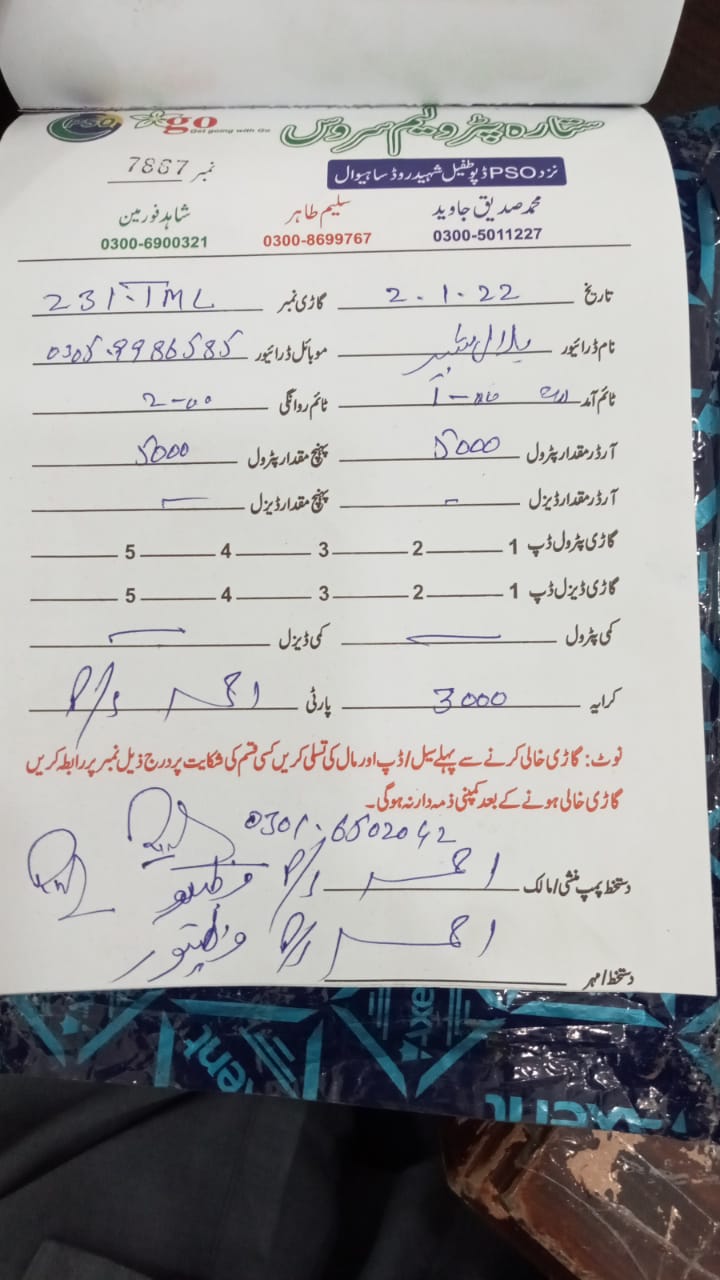 PSO go Get going with Go ستارہ پٹرولیم سروس
نزد PSO ڈپو طفیل شہید روڈ ساہیوال
نمبر 7867
محمد صدیق جاوید سلیم طاہر شاہد فورمین
0300-5011227 0300-8699767 0300-6900321
تاریخ 2.1.22 گاڑی نمبر 231.TML
نام ڈرائیور بلال موبائل ڈرائیور 0305.9986585
ٹائم آمد ٹائم روانگی 2-00
آرڈر مقدار پٹرول 5000 پہنچ مقدار پٹرول 5000
آرڈر مقدار ڈیزل - پہنچ مقدار ڈیزل -
گاڑی پٹرول ڈپ 1 2 3 4 5
گاڑی ڈیزل ڈپ 1 2 3 4 5
کمی پٹرول - کمی ڈیزل -
کرایہ 3000 پارٹی احمد P/S
نوٹ: گاڑی خالی کرنے سے پہلے سیل / ڈپ اور مال کی تسلی کریں کسی قسم کی شکایت پر درج ذیل نمبر پر رابطہ کریں
گاڑی خالی ہونے کے بعد کمپنی ذمہ دار نہ ہوگی۔
0301.6502042
دستخط پمپ منشی / مالک احمد P/S
دستخط / مہر احمد P/S